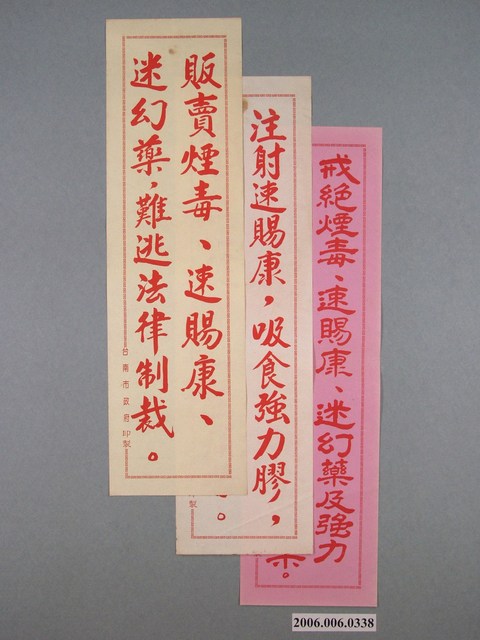 販賣煙毒、速賜康、
迷幻藥,難逃法律制裁。
台南市政府印製
注射速賜康,吸食強力膠,
。
製
戒絕煙毒、速賜康、迷幻藥及強力
。
2006.006.0338